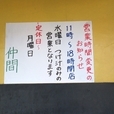 営業時間変更の
お知らせ
11時〜18時閉店
水曜日つけ汁のみの
営業となります
定休日〜
月曜日
仲間